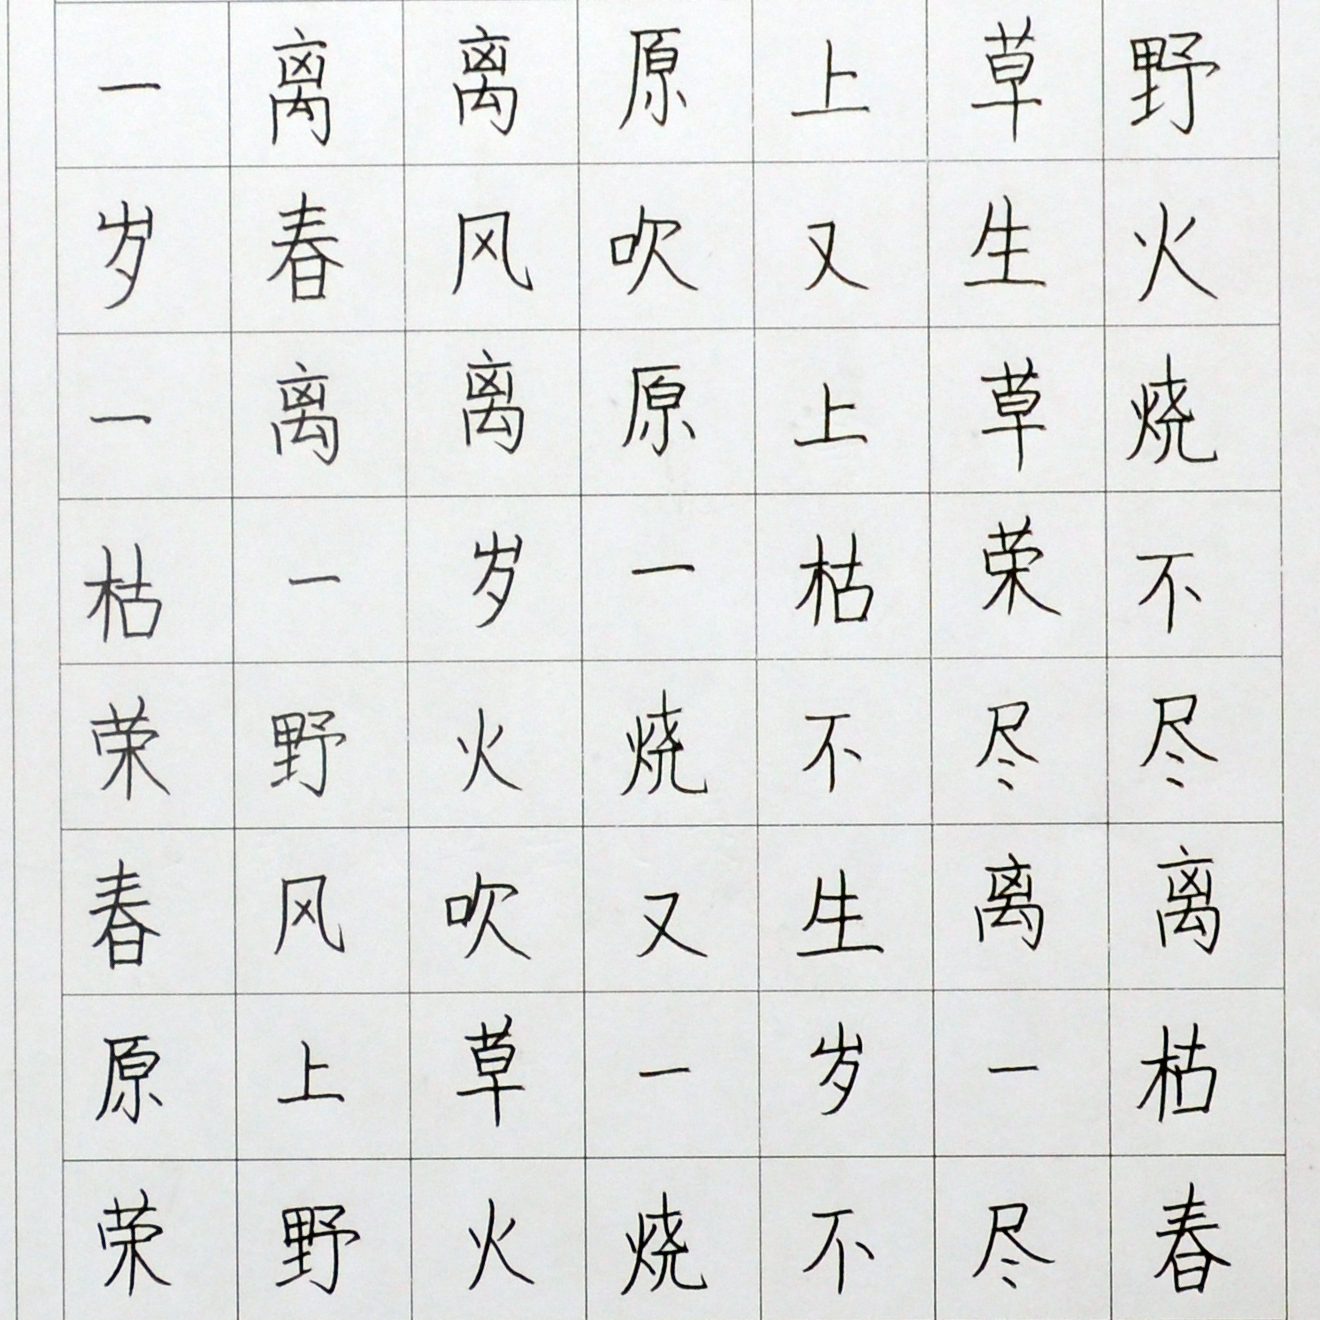 一离离原上草野
岁春风吹又生火
一离离原上草烧
枯一岁一枯荣不
荣野火烧不尽尽
春风吹又生离离
原上草一岁一枯
荣野火烧不尽春